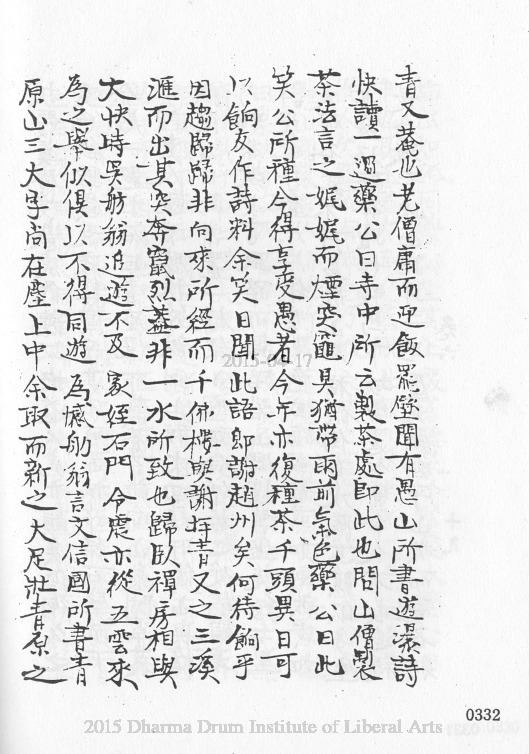 青又菴也老僧庸而迎飯罷壁間有愚山所書遊瀑詩
快讀一過藥公曰寺中所云製茶處即此也問山僧製
茶法言之娓娓而煙突竈具猶帶雨前氣色藥公曰此
笑公所種今得享受愚者今年亦復種茶千頭異日可
以餉友作詩料余笑曰聞此語即謝趙州矣何待餉乎
因趨歸歸非向來所經而千佛樓與謝拜青又之三溪
滙而出其突奔竄烈蓋非一水所致也歸臥禪房相與
大快時吳舫翁追遊不及家姪石門令震亦從五雲來
為之舉似俱以不得同遊為憾舫翁言文信國所書青
原山三大字尚在塵上中余取而新之大足壯青原之
2015-04-17
0332
2015 Dharma Drum Institute of Liberal Arts